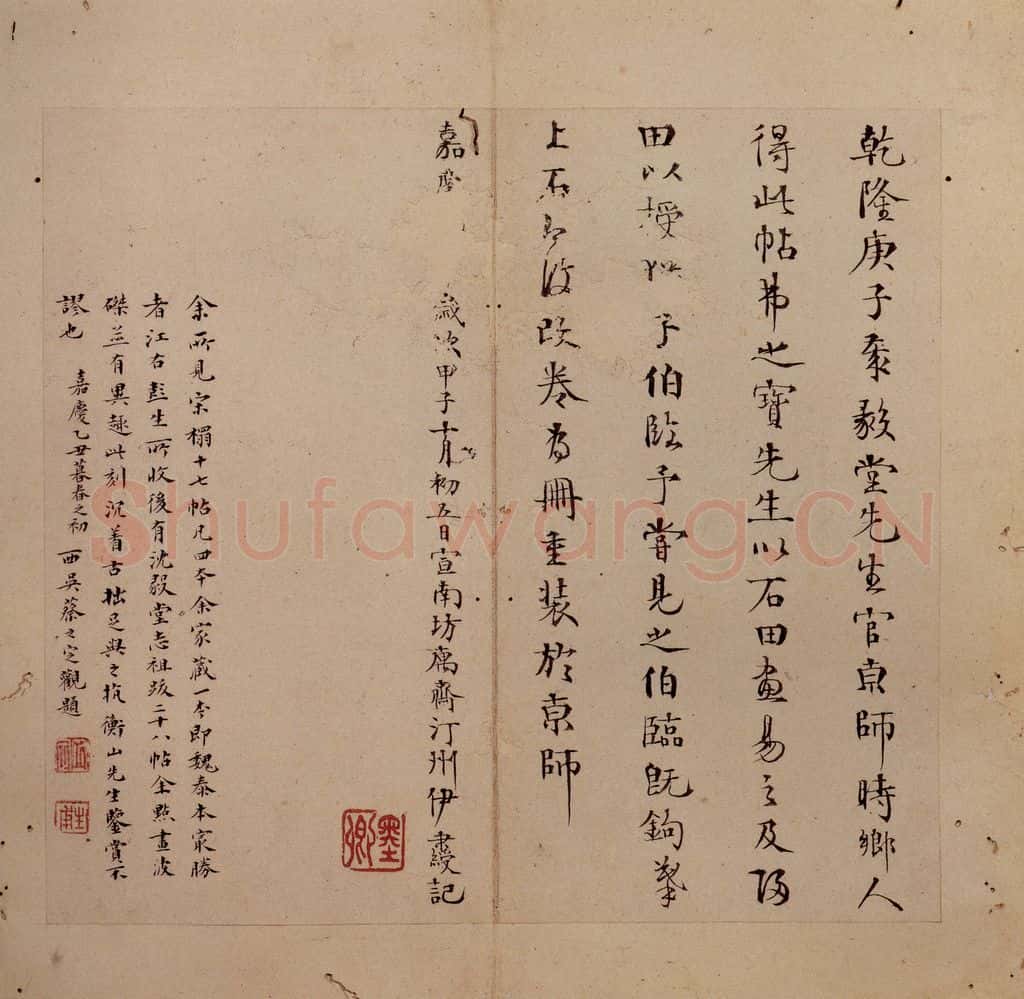 乾隆庚子秦毅堂先生官京師時鄉人
得此帖弗之寶先生以石田畫易之及歸
田以授 子伯臨予嘗見之伯臨既鉤摹
上石 復改卷為冊重裝於京師
嘉慶 歲次甲子十月初五日宣南坊寓齋汀州伊 綬記
墨卿
余所見宋榻十七帖凡四本余家藏一本即魏泰本最勝
者江右彭生所收後有沈毅堂志祖跋二十八帖余點畫波
磔並有異趣此刻沉着古拙足與之抗衡山先生鑒賞不
謬也 嘉慶乙丑暮春之初 西吳蔡之定觀題
Shufawang.CN